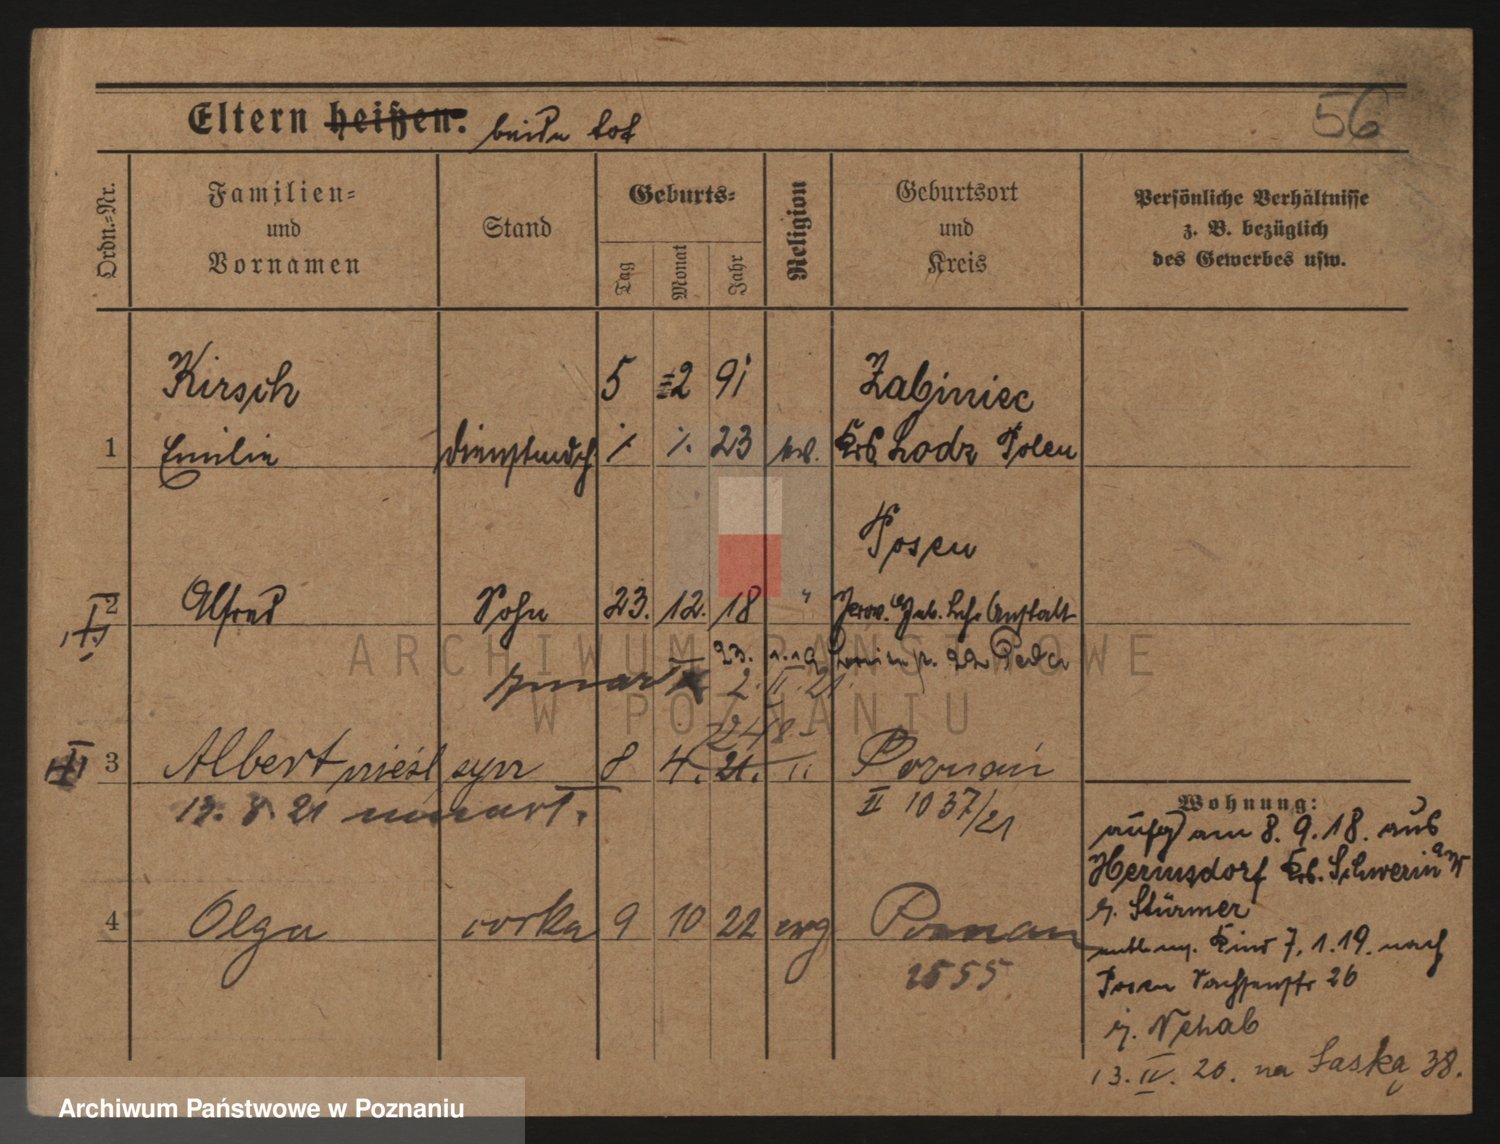 56
Eltern heißen: beide tot
Ordn.=Nr.
Familien=
und
Vornamen
Stand
Geburts=
Tag
Monat
Jahr
Religion
Geburtsort
und
Kreis
Persönliche Verhältnisse
z. B. bezüglich
des Gewerbes usw.
Kirsch 5 2 91 Żabiniec
1 Emilie Dienstmdch. 23 Krs. Lodz Polen
Posen
2 Alfred Sohn 23. 12. 18 " Prov. Heb. Lehr Anstalt
2. II. 21
3 Albert nieśl syn 8 4. 21. " Poznań
13. 8. 21 umarł. II 1037/21
Wohnung:
am 8. 9. 18. aus
Hermsdorf Krs. Schwerin a/W
b. Stürmer
4 Olga córka 9 10 22 ewg Poznań
Kind 7. 1. 19. nach
2555
Posen Sachsenstr 26
b. Nehab
13. IV. 20. na Łaską 38.
ARCHIWUM PAŃSTWOWE
W POZNANIU
Archiwum Państwowe w Poznaniu